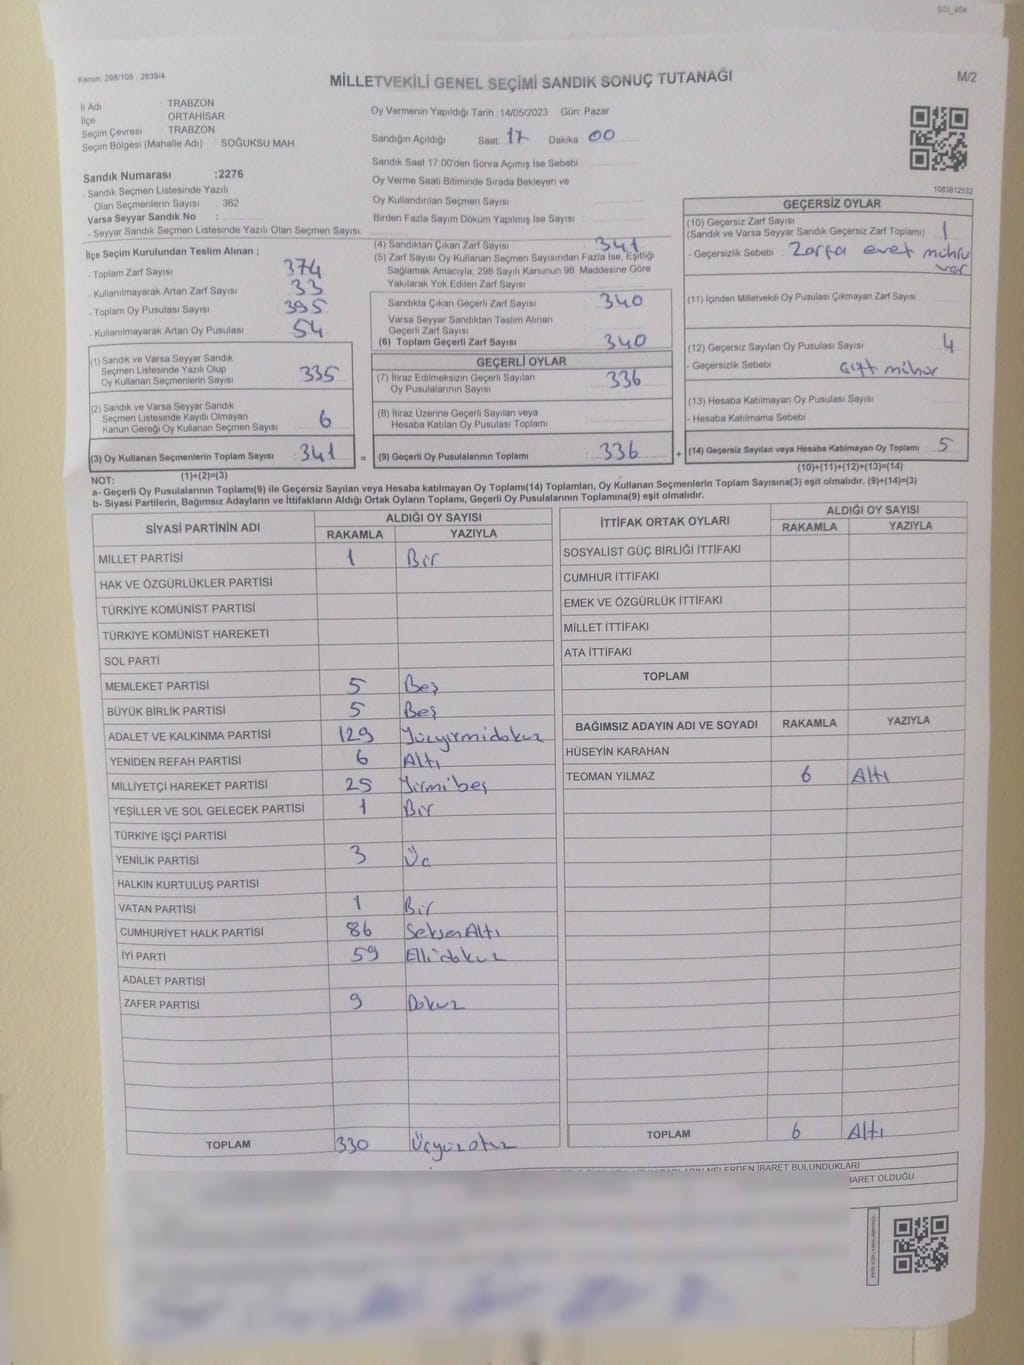 SS1_404
Kanun: 298/105 , 2839/4
MİLLETVEKİLİ GENEL SEÇİMİ SANDIK SONUÇ TUTANAĞI
M/2
İl Adı : TRABZON
İlçe : ORTAHİSAR
Seçim Çevresi : TRABZON
Seçim Bölgesi (Mahalle Adı) : SOĞUKSU MAH
Sandık Numarası :2276
- Sandık Seçmen Listesinde Yazılı
Olan Seçmenlerin Sayısı : 362
Varsa Seyyar Sandık No :
- Seyyar Sandık Seçmen Listesinde Yazılı Olan Seçmen Sayısı
Oy Vermenin Yapıldığı Tarih :14/05/2023 Gün: Pazar
Sandığın Açıldığı Saat 17 Dakika 00
Sandık Saat 17.00'den Sonra Açımış İse Sebebi
Oy Verme Saati Bitiminde Sırada Bekleyen ve
Oy Kullandırılan Seçmen Sayısı
Birden Fazla Sayım Döküm Yapılmış İse Sayısı
1083812932
İlçe Seçim Kurulundan Teslim Alınan ;
- Toplam Zarf Sayısı : 374
- Kullanılmayarak Artan Zarf Sayısı : 33
- Toplam Oy Pusulası Sayısı : 395
- Kullanılmayarak Artan Oy Pusulası : 54
(1) Sandık ve Varsa Seyyar Sandık
Seçmen Listesinde Yazılı Olup
Oy Kullanan Seçmenlerin Sayısı : 335
(2) Sandık ve Varsa Seyyar Sandık
Seçmen Listesinde Kayıtlı Olmayan
Kanun Gereği Oy Kullanan Seçmen Sayısı : 6
(3) Oy Kullanan Seçmenlerin Toplam Sayısı : 341 =
(1)+(2)=(3)
(4) Sandıktan Çıkan Zarf Sayısı : 341
(5) Zarf Sayısı Oy Kullanan Seçmen Sayısından Fazla İse, Eşitliği
Sağlamak Amacıyla, 298 Sayılı Kanunun 98. Maddesine Göre
Yakılarak Yok Edilen Zarf Sayısı
Sandıkta Çıkan Geçerli Zarf Sayısı : 340
Varsa Seyyar Sandıktan Teslim Alınan
Geçerli Zarf Sayısı
(6) Toplam Geçerli Zarf Sayısı : 340
GEÇERLİ OYLAR
(7) İtiraz Edilmeksizin Geçerli Sayılan
Oy Pusulalarının Sayısı : 336
(8) İtiraz Üzerine Geçerli Sayılan veya
Hesaba Katılan Oy Pusulası Toplamı
(9) Geçerli Oy Pusulalarının Toplamı : 336 +
GEÇERSİZ OYLAR
(10) Geçersiz Zarf Sayısı
(Sandık ve Varsa Seyyar Sandık Geçersiz Zarf Toplamı) 1
- Geçersizlik Sebebi : Zarfa evet mührü
var
(11) İçinden Milletvekili Oy Pusulası Çıkmayan Zarf Sayısı
(12) Geçersiz Sayılan Oy Pusulası Sayısı 4
- Geçersizlik Sebebi : Çift mühür
(13) Hesaba Katılmayan Oy Pusulası Sayısı
- Hesaba Katılmama Sebebi
(14) Geçersiz Sayılan veya Hesaba Katılmayan Oy Toplamı : 5
(10)+(11)+(12)+(13)=(14)
NOT:
a- Geçerli Oy Pusulalarının Toplamı(9) ile Geçersiz Sayılan veya Hesaba katılmayan Oy Toplamı(14) Toplamları, Oy Kullanan Seçmenlerin Toplam Sayısına(3) eşit olmalıdır. (9)+(14)=(3)
b- Siyasi Partilerin, Bağımsız Adayların ve İttifakların Aldığı Ortak Oyların Toplamı, Geçerli Oy Pusulalarının Toplamına(9) eşit olmalıdır.
SİYASİ PARTİNİN ADI ALDIĞI OY SAYISI
RAKAMLA YAZIYLA
MİLLET PARTİSİ 1 Bir
HAK VE ÖZGÜRLÜKLER PARTİSİ
TÜRKİYE KOMÜNİST PARTİSİ
TÜRKİYE KOMÜNİST HAREKETİ
SOL PARTİ
MEMLEKET PARTİSİ 5 Beş
BÜYÜK BİRLİK PARTİSİ 5 Beş
ADALET VE KALKINMA PARTİSİ 129 Yüzyirmidokuz
YENİDEN REFAH PARTİSİ 6 Altı
MİLLİYETÇİ HAREKET PARTİSİ 25 Yirmibeş
YEŞİLLER VE SOL GELECEK PARTİSİ 1 Bir
TÜRKİYE İŞÇİ PARTİSİ
YENİLİK PARTİSİ 3 Üç
HALKIN KURTULUŞ PARTİSİ
VATAN PARTİSİ 1 Bir
CUMHURİYET HALK PARTİSİ 86 SeksenAltı
İYİ PARTİ 59 Ellidokuz
ADALET PARTİSİ
ZAFER PARTİSİ 9 Dokuz
TOPLAM 330 Üçyüzotuz
İTTİFAK ORTAK OYLARI ALDIĞI OY SAYISI
RAKAMLA YAZIYLA
SOSYALİST GÜÇ BİRLİĞİ İTTİFAKI
CUMHUR İTTİFAKI
EMEK VE ÖZGÜRLÜK İTTİFAKI
MİLLET İTTİFAKI
ATA İTTİFAKI
TOPLAM
BAĞIMSIZ ADAYIN ADI VE SOYADI RAKAMLA YAZIYLA
HÜSEYİN KARAHAN
TEOMAN YILMAZ 6 Altı
TOPLAM 6 Altı
NELERDEN İBARET BULUNDUKLARI
İBARET OLDUĞU